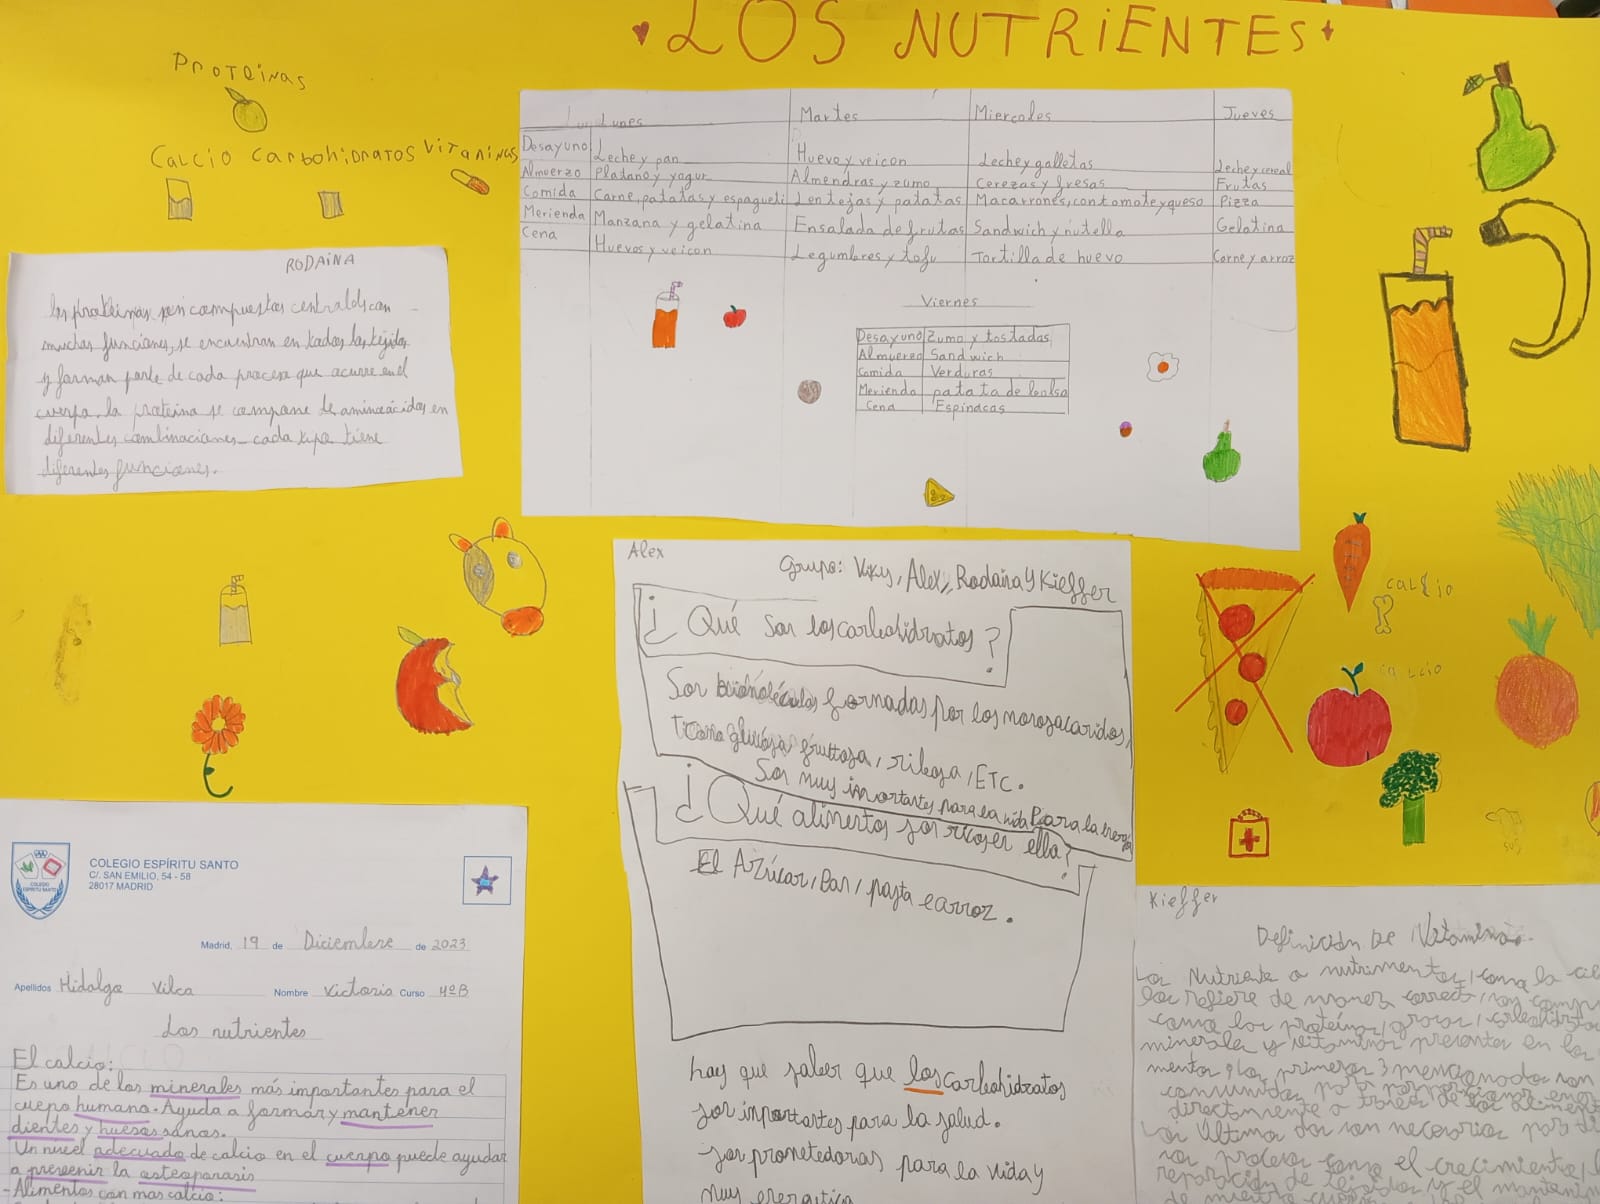 LOS NUTRIENTES
PROTEINAS
CALCIO CARBOHIDRATOS VITAMINAS
Lunes Martes Miercoles Jueves
Desayuno Leche y pan Huevo y veicon Leche y galletas Leche y cereal
Almuerzo Platano y yogur Almendras y zumo Cerezas y fresas Frutas
Comida Carne, patatas y espagueti Lentejas y patatas Macarrones, con tomate y queso Pizza
Merienda Manzana y gelatina Ensalada de frutas Sandwich y nutella Gelatina
Cena Huevos y veicon Legumbres y tofu Tortilla de huevo Carne y arroz
Viernes
Desayuno Zumo y tostadas
Almuerzo Sandwich
Comida Verduras
Merienda patata de bolsa
Cena Espinacas
RODAINA
las proteinas son compuestos centrales con
muchas funciones, se encuentran en todos los tejidos
y forman parte de cada proceso que ocurre en el
cuerpo. la proteina se compone de aminoácidos en
diferentes combinaciones cada tipo tiene
diferentes funciones.
Alex
Grupo: Viky, Alex, Rodaina y Kieffer
¿Qué son los carbohidratos?
Son formadas por los
glucosa, fruttosa, ribosa, ETC.
Son muy importantes para la vida Para la
¿Qué alimentos son ella?
El Azúcar, Pan, pasta e arroz.
hay que saber que los carbohidratos
son importantes para la salud.
son prometedoras para la vida y
muy energetica
calcio
calcio
COLEGIO ESPÍRITU SANTO
C/. SAN EMILIO, 54 - 58
28017 MADRID
Madrid, 19 de Diciembre de 2023
Apellidos Hidalgo Vilca Nombre Victoria Curso 4ºB
Los nutrientes
El calcio:
Es uno de los minerales más importantes para el
cuepo humano. Ayuda a formar y mantener
dientes y huesos sanos.
Un nivel adecuado de calcio en el cuerpo puede ayudar
a prevenir la osteoporosis
- Alimentos con mas calcio:
Kieffer
Definición De Vitamina.
Los Nutriente o nutrimentos, como la
los refiere de manera correcta, son
como los proteínas, grasas, carbohidratos
minerales y vitaminas presentes en los
los primeros 3 mencionados son
directamente a traves de los
Los Ultimos dos son necesarios para
como el crecimiento,
reparación de tejidos y el